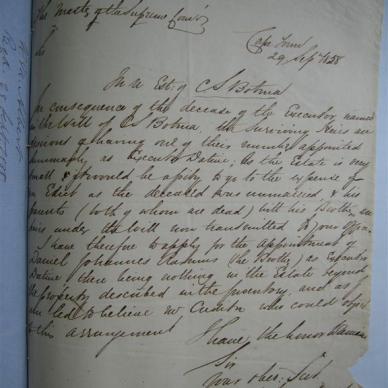 The Master of the Supreme Court
Sir
Cape Town
29 Sept 1858
In re Est. of C S Botma
In consequence of the decease of the Executor named
in the Will of C S Botma, the surviving Heirs are
desirous of having one of their number appointed
summarily as Executor Dative; As the Estate is very
small & it would be a pity to go to the expense of
an Edict as the deceased was unmarried & his
parents (both of whom are dead) with his Brother
heirs under the Will now transmitted to your Office
I have therefore to apply for the appointment of
Daniel Johannes (the Brother) as Executor
Dative there being nothing in the Estate beyond
the property described in the Inventory, and as I
am led to believe no Creditor who could object
to this arrangement
I have the honor to
Sir
Your obed. Servt